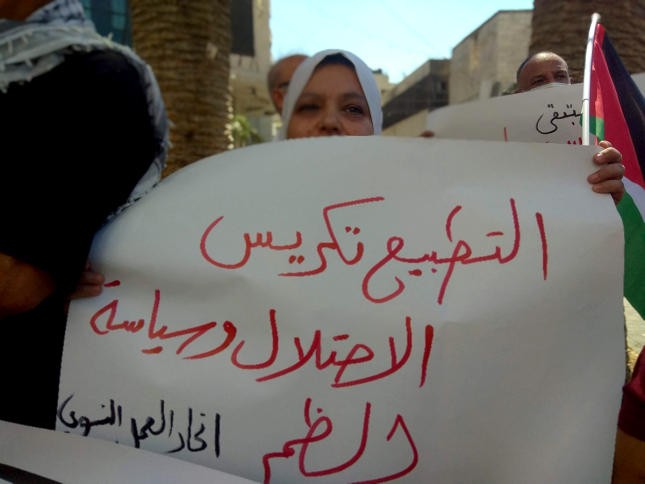 التطبيع تكريس
الاحتلال وسياسة
الظم
اتحاد العمل النسوي
ستبقى